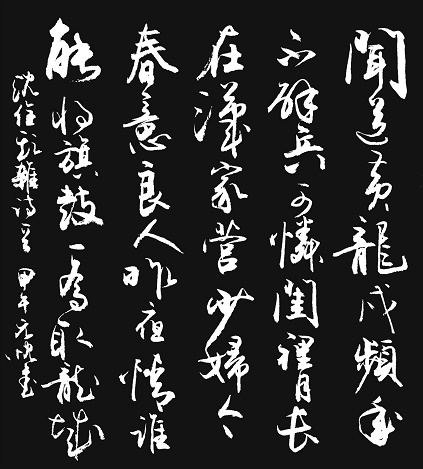 聞道黃龍戍頻年
不解兵可憐閨裡月長
在漢家營少婦今
春意良人昨夜情誰
能將旗鼓一為取龍城
沈佺期雜詩 甲午元 書